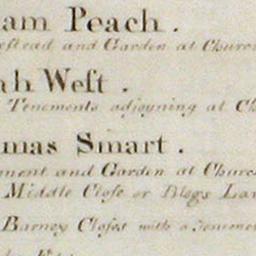 am Peach .
stead and Garden at Churc
ah West .
Tenements adjoyning at Ch
mas Smart .
ment and Garden at Churc
Middle Close or Blogs Lan
Barney Closes with a Teneme